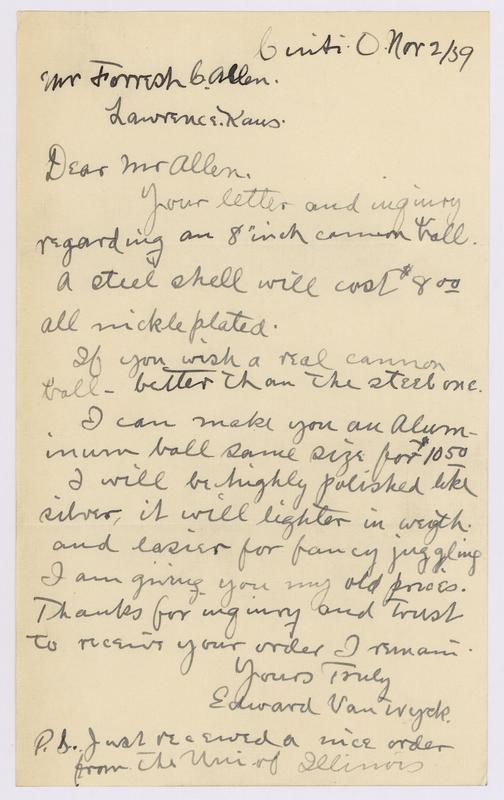 Cinti. O. Nov 2/39
Mr Forrest C. Allen.
Lawrence. Kans.
Dear Mr Allen.
Your letter and inquiry
regarding an 8" inch cannon ball.
A steel shell will cost $8 00
all nickle plated.
If you wish a real cannon
ball - better than the steel one.
I can make you an Alum-
inum ball same size for $10 50
I will be highly polished like
silver, it will lighter in weigth.
and easier for fancy juggling
I am giving you my old prices.
Thanks for inquiry and trust
to receive your order I remain.
Yours Truly
Edward Van Wyck.
P.S. Just received a nice order
from the Uni of Illinois